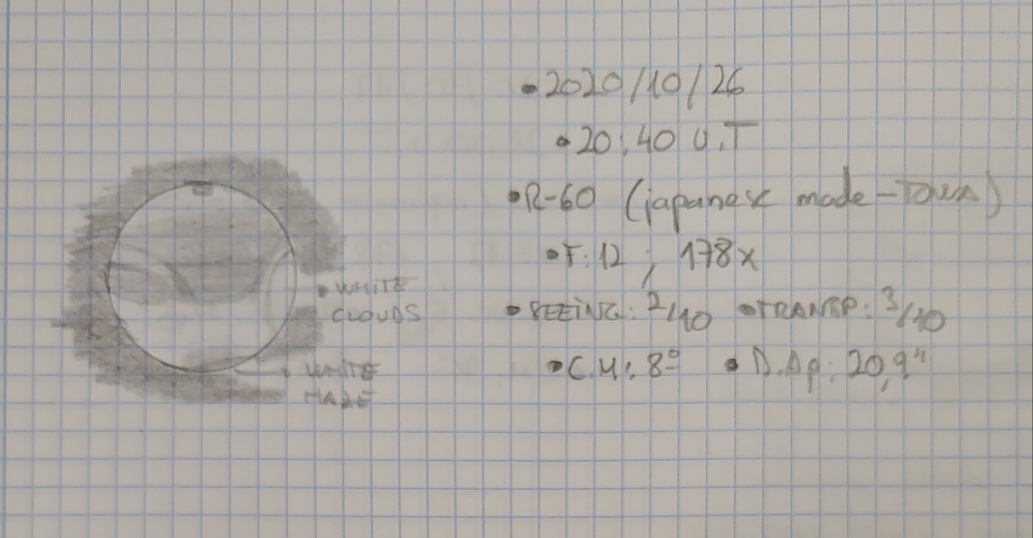 • 2020/10/26
• 20:40 U.T
• R-60 (japanese made - TOWA)
• F:12 ; 178x
• WHITE
CLOUDS
• SEEING: 2/10 • TRANSP: 3/10
• WHITE
HAZE
• C.M: 8º • D.Ap: 20,9"